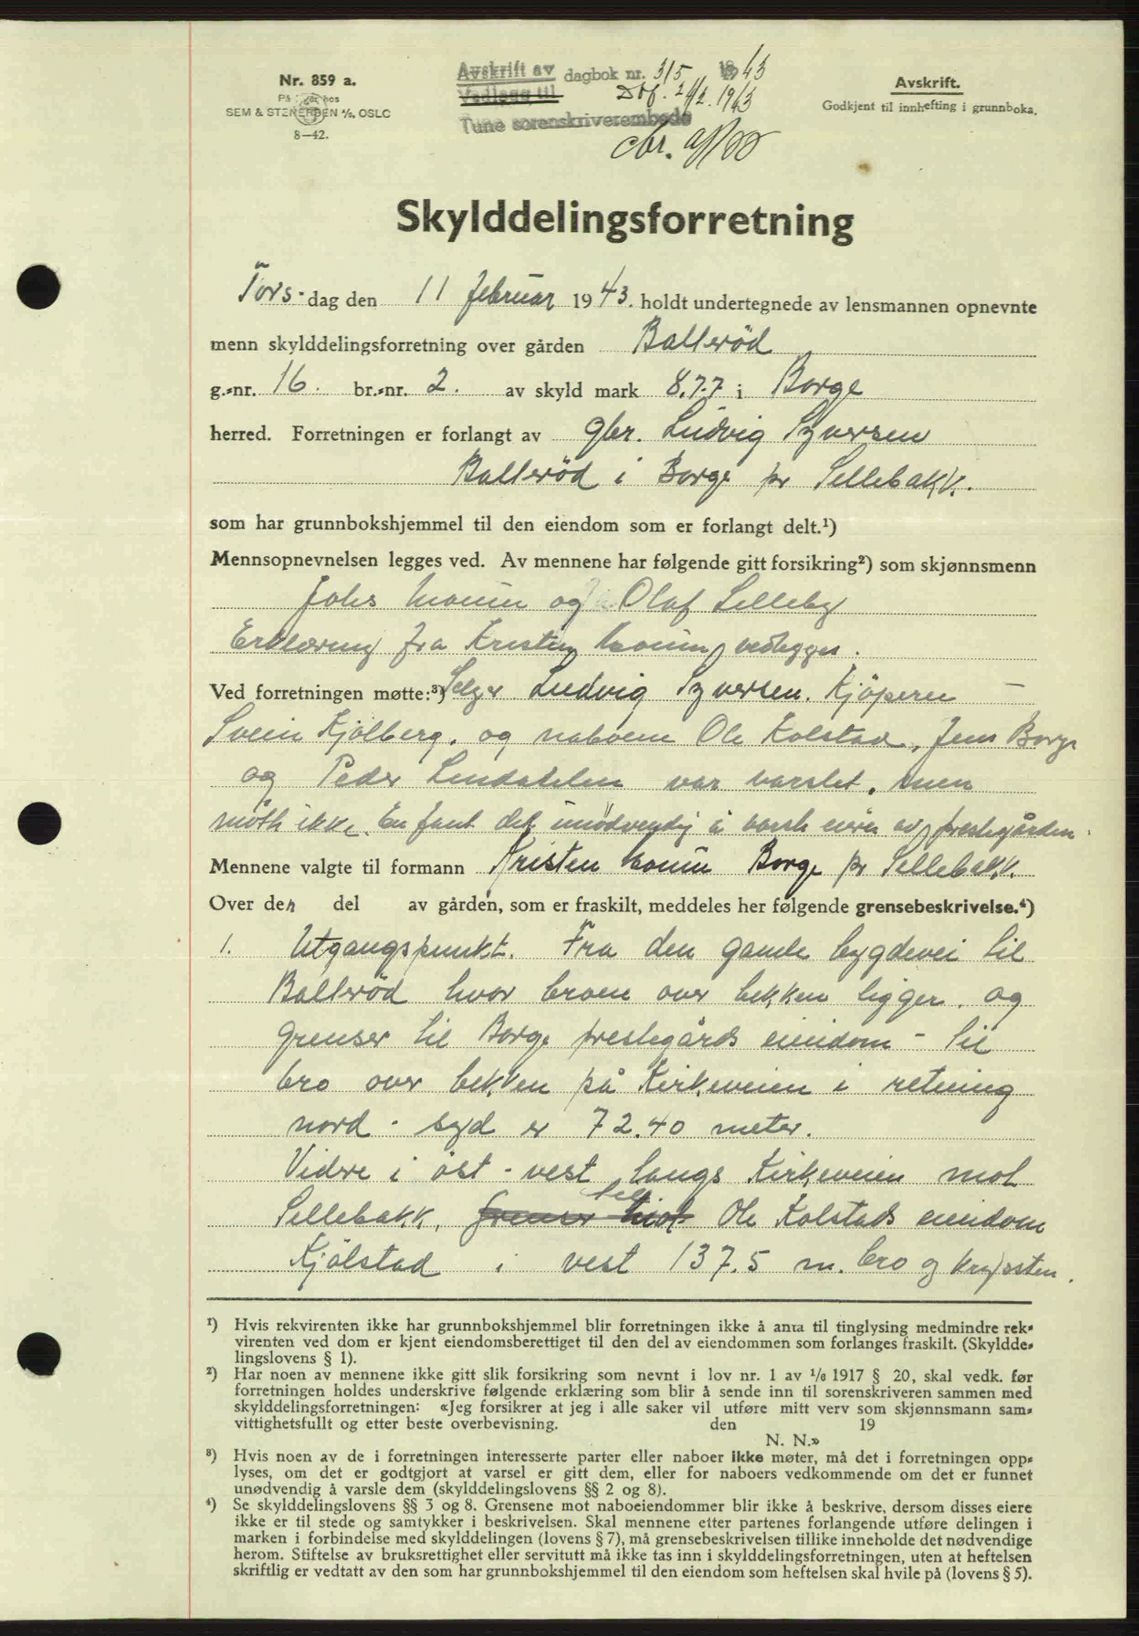 Nr. 859 a.
På lager hos
SEM & STENERSEN A/S, OSLO
8—42.
Avskrift av
Vedlegg til
dagbok nr. 315 1943
Dbf. 24/2. 1943
Tune sorenskriverembede
Avskrift.
Godkjent til innhefting i grunnboka.
Skylddelingsforretning
Tors- dag den 11 februar 1943. holdt undertegnede av lensmannen opnevnte
menn skylddelingsforretning over gården Ballerød
g.-nr. 16. br.-nr. 2. av skyld mark 8.77 i Borge
herred. Forretningen er forlangt av gbr. Ludvig Syversen
Ballerød i Borge pr Sellebakk.
som har grunnbokshjemmel til den eiendom som er forlangt delt.¹)
Mennsopnevnelsen legges ved. Av mennene har følgende gitt forsikring²) som skjønnsmenn
Johs og Olaf Lilleby
Erklæring fra Kristen vedlegges.
Ved forretningen møtte:³) Selger Ludvig Syversen. Kjöperen —
Svein Kjölberg. og naboene Ole Kolstad, Jens Borge
og Peder var varslet, men
mötte ikke. En fant det unödvendig å varsle eier av prestegården.
Mennene valgte til formann Kristen Borge pr Sellebakk.
Over den del av gården, som er fraskilt, meddeles her følgende grensebeskrivelse.⁴)
1. Utgangspunkt. Fra den gamle bygdevei til
Ballerød hvor broen over bekken ligger, og
grenser til Borge prestegårds eiendom - til
bro over bekken på Kirkeveien i retning
nord - syd er 72.40 meter.
Videre i öst - vest langs Kirkeveien mot
Sellebakk, grenser mot til Ole Kolstads eiendom
Kjölstad i vest 137.5 m. bro og
¹) Hvis rekvirenten ikke har grunnbokshjemmel blir forretningen ikke å anta til tinglysing medmindre rek-
virenten ved dom er kjent eiendomsberettiget til den del av eiendommen som forlanges fraskilt. (Skyldde-
lingslovens § 1).
²) Har noen av mennene ikke gitt slik forsikring som nevnt i lov nr. 1 av 1/6 1917 § 20, skal vedk. før
forretningen holdes underskrive følgende erklæring som blir å sende inn til sorenskriveren sammen med
skylddelingsforretningen: «Jeg forsikrer at jeg i alle saker vil utføre mitt verv som skjønnsmann sam-
vittighetsfullt og etter beste overbevisning. den 19
N. N.»
³) Hvis noen av de i forretningen interesserte parter eller naboer ikke møter, må det i forretningen opp-
lyses, om det er godtgjort at varsel er gitt dem, eller for naboers vedkommende om det er funnet
unødvendig å varsle dem (skylddelingslovens §§ 2 og 8).
⁴) Se skylddelingslovens §§ 3 og 8. Grensene mot naboeiendommer blir ikke å beskrive, dersom disses eiere
ikke er til stede og samtykker i beskrivelsen. Skal mennene etter partenes forlangende utføre delingen i
marken i forbindelse med skylddelingen (lovens § 7), må grensebeskrivelsen tillike inneholde det nødvendige
herom. Stiftelse av bruksrettighet eller servitutt må ikke tas inn i skylddelingsforretningen, uten at heftelsen
skriftlig er vedtatt av den som har grunnbokshjemmel til den eiendom som heftelsen skal hvile på (lovens § 5).